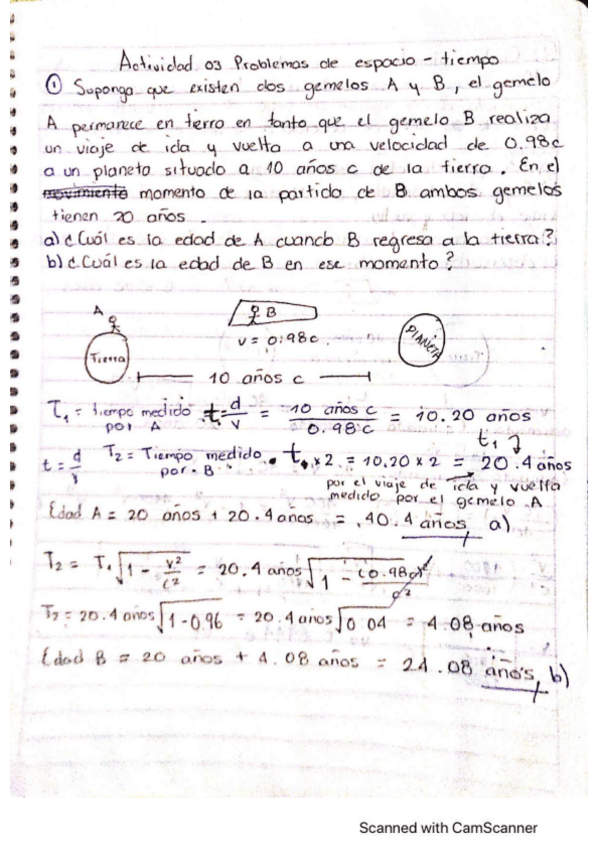 Actividad 03 Problemas de espacio - tiempo
① Suponga que existen dos gemelos A y B, el gemelo
A permanece en tierra en tanto que el gemelo B realiza
un viaje de ida y vuelta a una velocidad de 0.98c
a un planeta situado a 10 años c de la tierra. En el
movimiento momento de la partida de B ambos gemelos
tienen 20 años.
a) ¿Cuál es la edad de A cuando B regresa a la tierra?
b) ¿Cuál es la edad de B en ese momento?
A
B
Tierra
v = 0.98c
PLANETA
10 años c
T₁ = tiempo medido por A t = d/v = 10 años c / 0.98c = 10.20 años
t₁
t = d/v T₂ = Tiempo medido por B t × 2 = 10.20 × 2 = 20.4 años
por el viaje de ida y vuelta
medido por el gemelo A
Edad A = 20 años + 20.4 años = 40.4 años a)
T₂ = T₁ √(1 - v²/c²) = 20.4 años √(1 - (0.98c)²/c²)
T₂ = 20.4 años √(1 - 0.96) = 20.4 años √0.04 = 4.08 años
Edad B = 20 años + 4.08 años = 24.08 años b)
Scanned with CamScanner